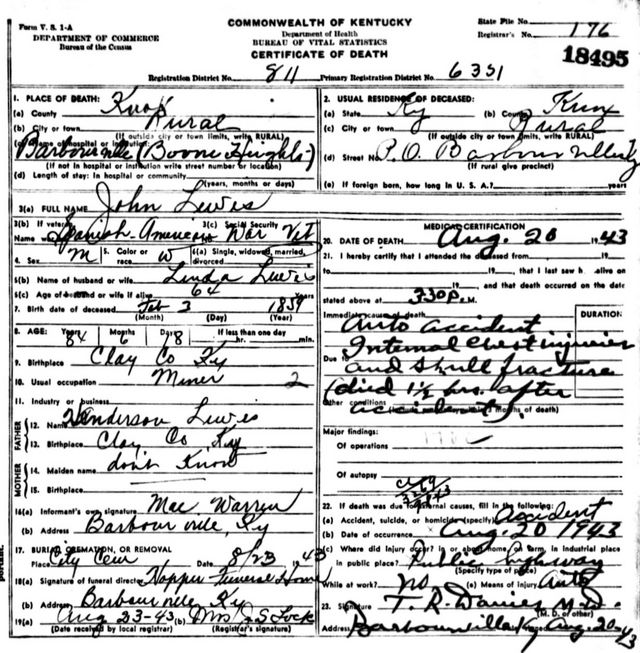 Form V. S. 1-A
DEPARTMENT OF COMMERCE
Bureau of the Census
COMMONWEALTH OF KENTUCKY
Department of Health
BUREAU OF VITAL STATISTICS
CERTIFICATE OF DEATH
State File No.
Registrar's No. 176
18495
Registration District No. 811 Primary Registration District No. 6351
1. PLACE OF DEATH:
(a) County Knox
(b) City or town Rural
(If outside city or town limits, write RURAL)
(c) Name of hospital or institution:
Barbourville (Boone Heights)
(If not in hospital or institution write street number or location)
(d) Length of stay: In hospital or community
(Years, months or days)
2. USUAL RESIDENCE OF DECEASED:
(a) State Ky (b) County Knox
(c) City or town Rural
(If outside city or town limits, write RURAL)
(d) Street No. P.O. Barbourville Ky
(If rural give precinct)
(e) If foreign born, how long in U. S. A.? years
3(a) FULL NAME John Lewis
3(b) If veteran, name war Spanish-American War Vet 3(c) Social Security No.
4. Sex M 5. Color or race W 6(a) Single, widowed, married, divorced
6(b) Name of husband or wife Linda Lewis
6(c) Age of husband or wife if alive 64 Years
7. Birth date of deceased Feb 3 1859
(Month) (Day) (Year)
8. AGE: Years 84 Months 6 Days 18 If less than one day hr. min.
9. Birthplace Clay Co Ky
10. Usual occupation Miner 2
11. Industry or business
FATHER
12. Name Henderson Lewis
13. Birthplace Clay Co Ky
MOTHER
14. Maiden name don't Know
15. Birthplace
16(a) Informant's own signature Mae Warren
(b) Address Barbourville, Ky
17. BURIAL, CREMATION, OR REMOVAL
Place City Cem Date 8/23 1943
18(a) Signature of funeral director Hopper Funeral Home
(b) Address Barbourville Ky
19(a) Aug 23-43 (b) Mrs J. S Lock
(Date received by local registrar) (Registrar's signature)
MEDICAL CERTIFICATION
20. DATE OF DEATH Aug. 20 1943
21. I hereby certify that I attended the deceased from
19 , to 19 , that I last saw h alive on
19 , and that death occurred on the date
stated above at 3:30 P. M.
Immediate cause of death DURATION
Auto accident
Internal chest injuries
Due to and skull fracture
(died 1½ hrs. after
Other conditions accident).
(Include pregnancy within 3 months of death)
Major findings:
Of operations
Of autopsy
22. If death was due to external causes, fill in the following:
(a) Accident, suicide, or homicide (specify) Accident
(b) Date of occurrence Aug. 20 1943
(c) Where did injury occur? in or about home, on farm, in industrial place
in public place? Public highway
(Specify type of place)
While at work? no (e) Means of injury Auto
23. Signature T. R. Davies M.D.
(M. D. or other)
Address Barbourville Ky Date signed Aug-20-43